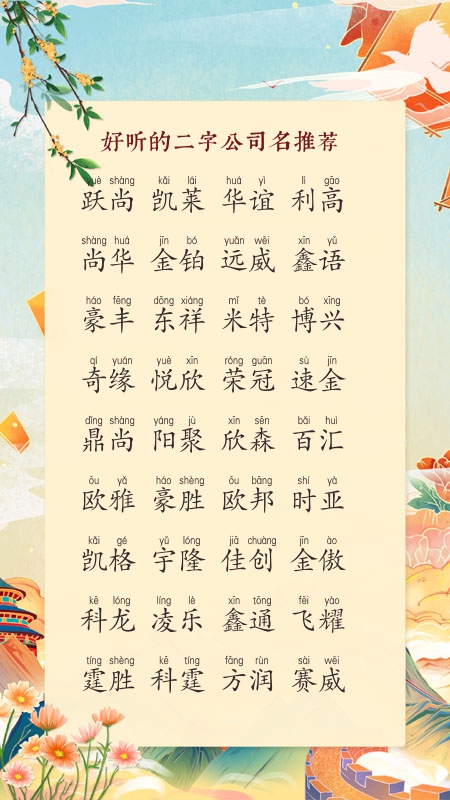 好听的二字公司名推荐
yuè shàng kǎi lái huá yì lì gāo
跃尚 凯莱 华谊 利高
shàng huá jīn bó yuǎn wēi xīn yǔ
尚华 金铂 远威 鑫语
háo fēng dōng xiáng mí tè bó xīng
豪丰 东祥 米特 博兴
qí yuán yuè xīn róng guān sù jīn
奇缘 悦欣 荣冠 速金
dǐng shàng yáng jù xīn sēn bǎi huì
鼎尚 阳聚 欣森 百汇
ōu yǎ háo shèng ōu bāng shí yà
欧雅 豪胜 欧邦 时亚
kǎi gé yǔ lóng jiā chuàng jīn ào
凯格 宇隆 佳创 金傲
kē lóng líng lè xīn tōng fēi yào
科龙 凌乐 鑫通 飞耀
tíng shèng kē tíng fāng rùn sài wēi
霆胜 科霆 方润 赛威